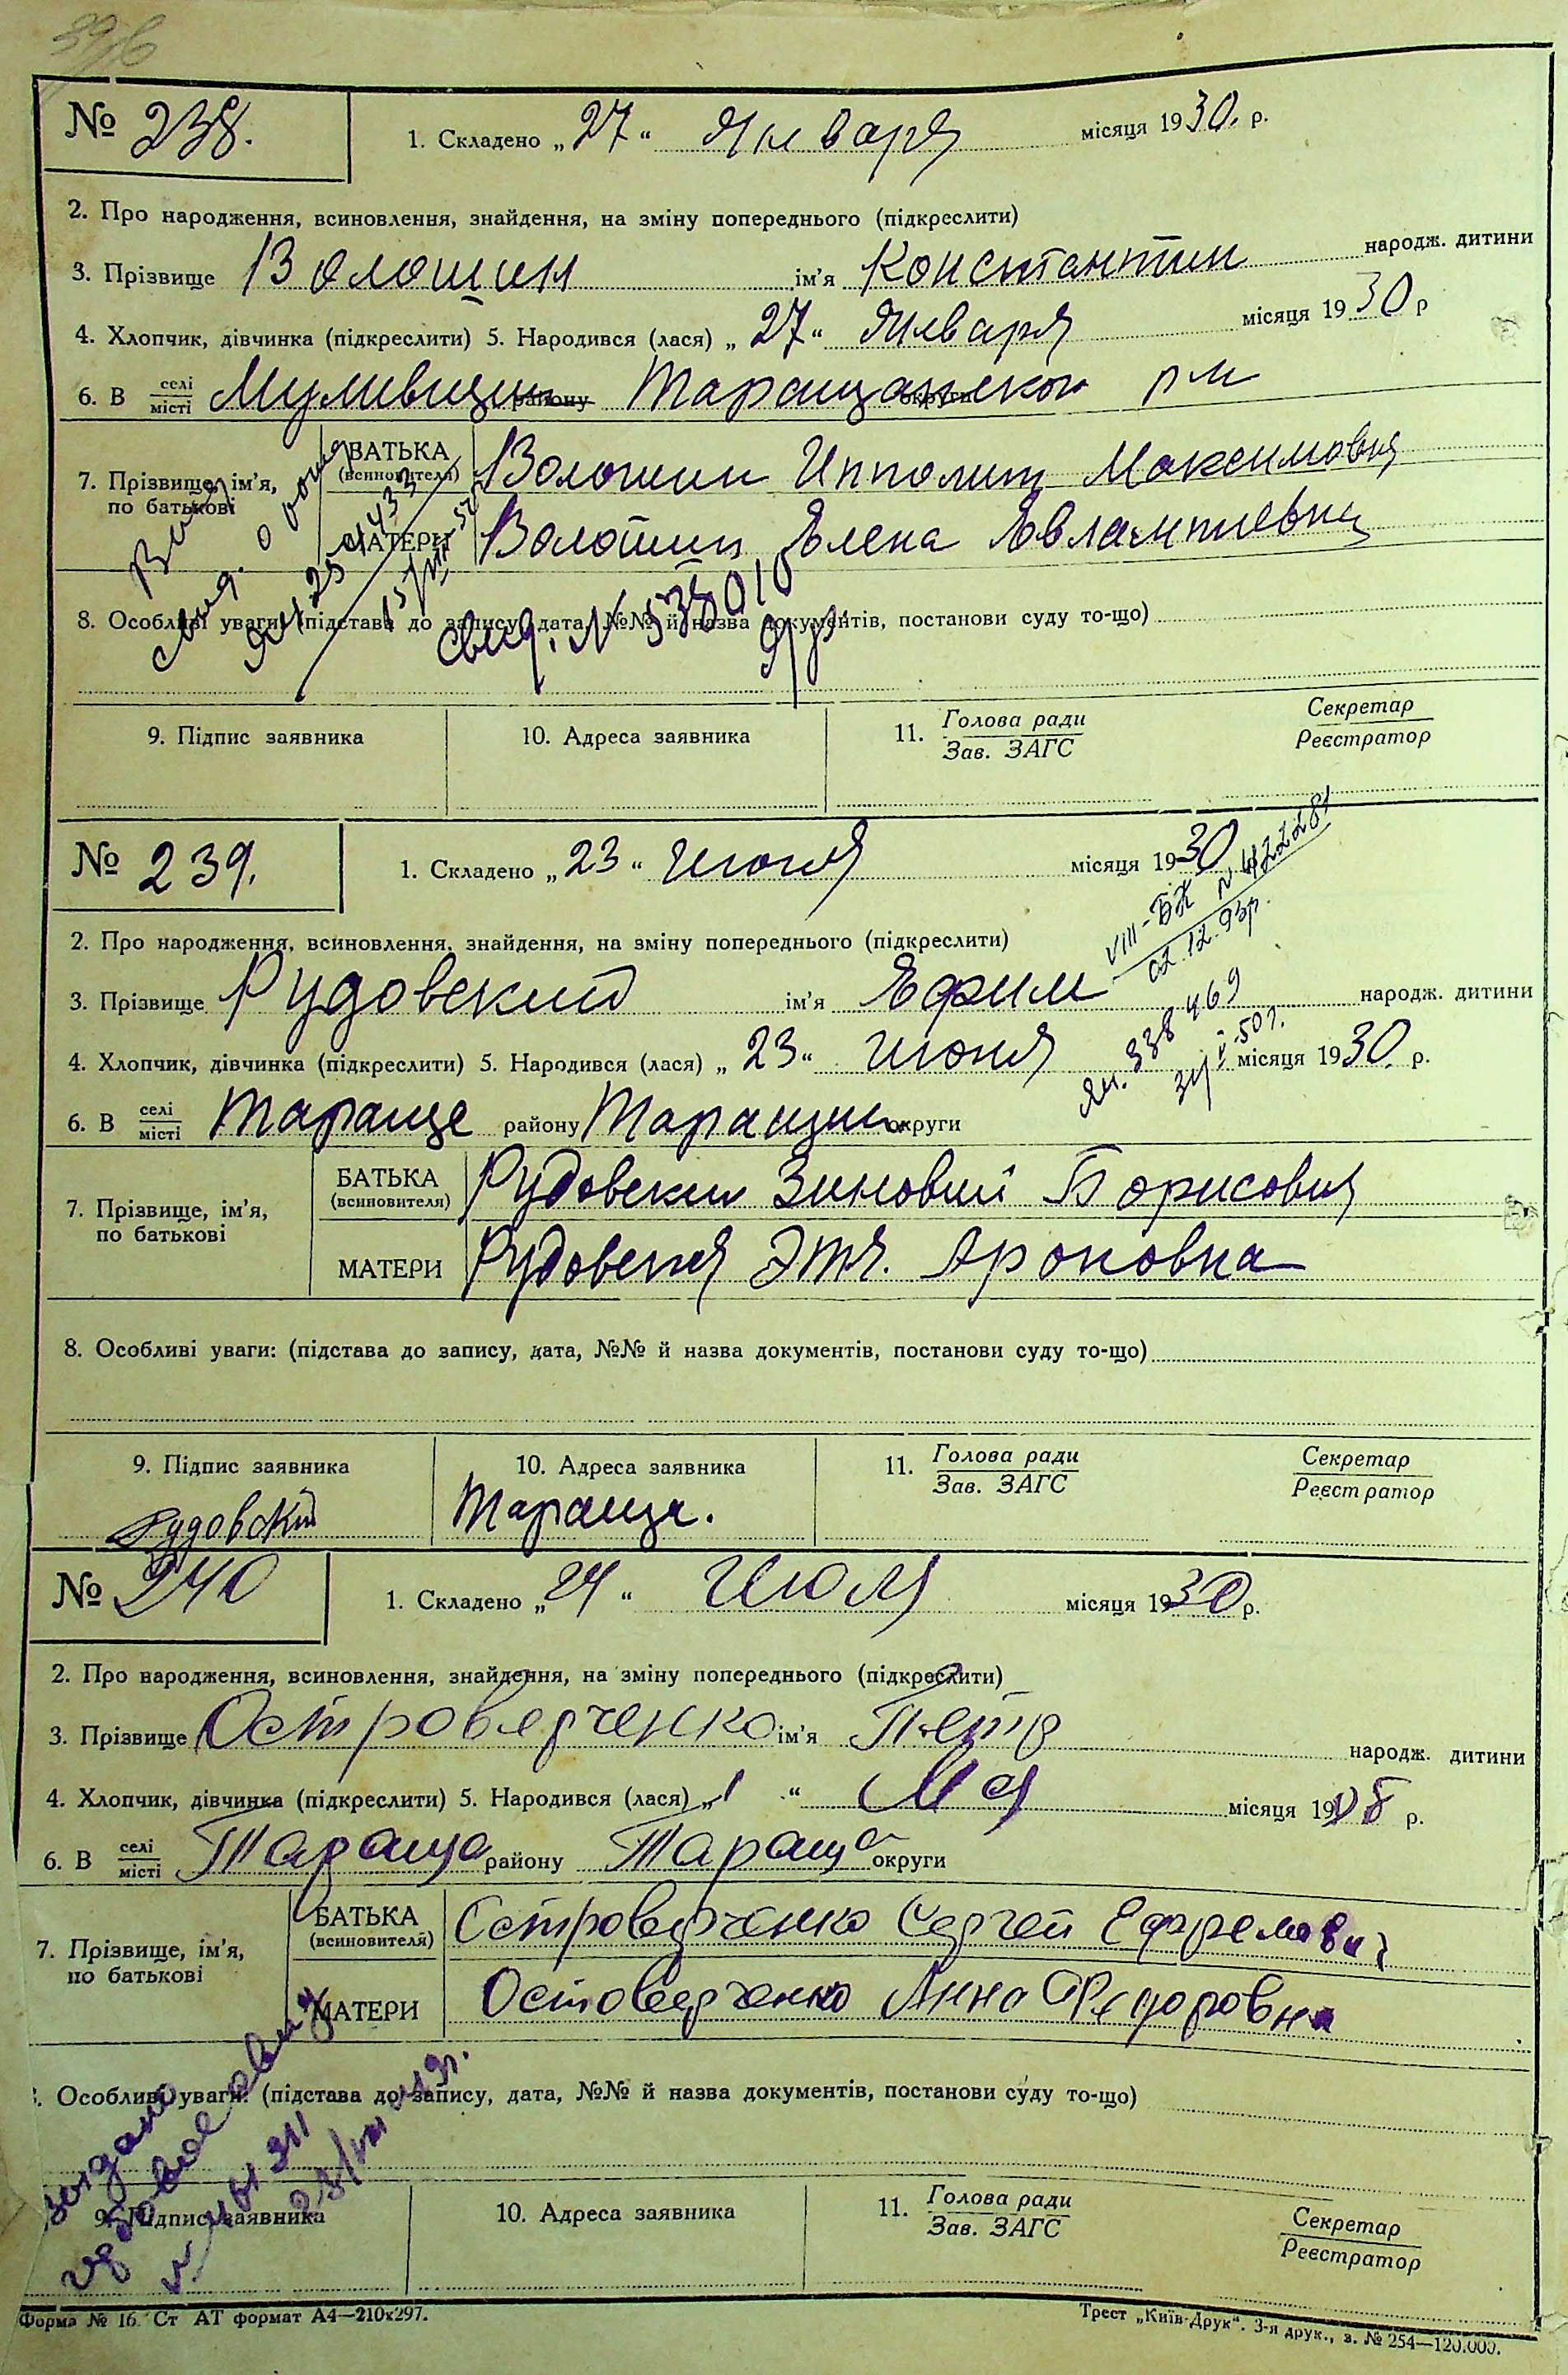 № 238.
1. Складено „ 27 “ Января місяця 1930. р.
2. Про народження, всиновлення, знайдення, на зміну попереднього (підкреслити)
3. Прізвище Волошин ім'я Константин народж. дитини
4. Хлопчик, дівчинка (підкреслити) 5. Народився (лася) „ 27 “ Января місяця 1930 р
6. В селі/місті району Таращанского округи р-н
7. Прізвище, ім'я, по батькові
БАТЬКА (всиновителя) Волошин Ипполит Максимович
МАТЕРИ Волошин Елена Евлампиевна
8. Особливі уваги: (підстава до запису, дата, №№ й назва документів, постанови суду то-що)
свид. N 538010
9. Підпис заявника
10. Адреса заявника
11. Голова ради
Зав. ЗАГС
Секретар
Реєстратор
№ 239.
1. Складено „ 23 “ Июня місяця 1930 р.
VIII-БК N 422281
02.12.93р.
2. Про народження, всиновлення, знайдення, на зміну попереднього (підкреслити)
3. Прізвище Рудовский ім'я Ефим народж. дитини
Ян. 338469
4. Хлопчик, дівчинка (підкреслити) 5. Народився (лася) „ 23 “ Июня місяця 1930. р.
6. В селі/місті Тараще району Таращин округи
7. Прізвище, ім'я, по батькові
БАТЬКА (всиновителя) Рудовский Зиновий Борисович
МАТЕРИ Рудовская Этя. Ароновна
8. Особливі уваги: (підстава до запису, дата, №№ й назва документів, постанови суду то-що)
9. Підпис заявника
10. Адреса заявника
11. Голова ради
Зав. ЗАГС
Секретар
Реєстратор
Рудовский
Тараща.
№ 240
1. Складено „ 24 “ Июля місяця 1930 р.
2. Про народження, всиновлення, знайдення, на зміну попереднього (підкреслити)
3. Прізвище Островерченко ім'я Петр народж. дитини
4. Хлопчик, дівчинка (підкреслити) 5. Народився (лася) „ 1 “ Мая місяця 19 р.
6. В селі/місті Тараща району Тараща округи
7. Прізвище, ім'я, по батькові
БАТЬКА (всиновителя) Островерченко Сергей Ефремович
МАТЕРИ Остоверченко Анна Федоровна
8. Особливі уваги: (підстава до запису, дата, №№ й назва документів, постанови суду то-що)
9. Підпис заявника
10. Адреса заявника
11. Голова ради
Зав. ЗАГС
Секретар
Реєстратор
Форма № 16. Ст АТ формат А4—210х297.
Трест „Київ-Друк“. 3-я друк., з. № 254—120.000.